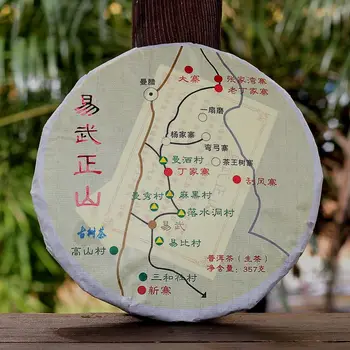 易武正山
古树茶
曼腊
大寨
张家湾寨
老丁家寨
一扇磨
杨家寨
弯弓寨
曼洒村
茶王树寨
丁家寨
刮风寨
曼秀村
麻黑村
落水洞村
易武
易比村
高山村
三和社村
新寨
普洱茶（生茶）
净含量：357克